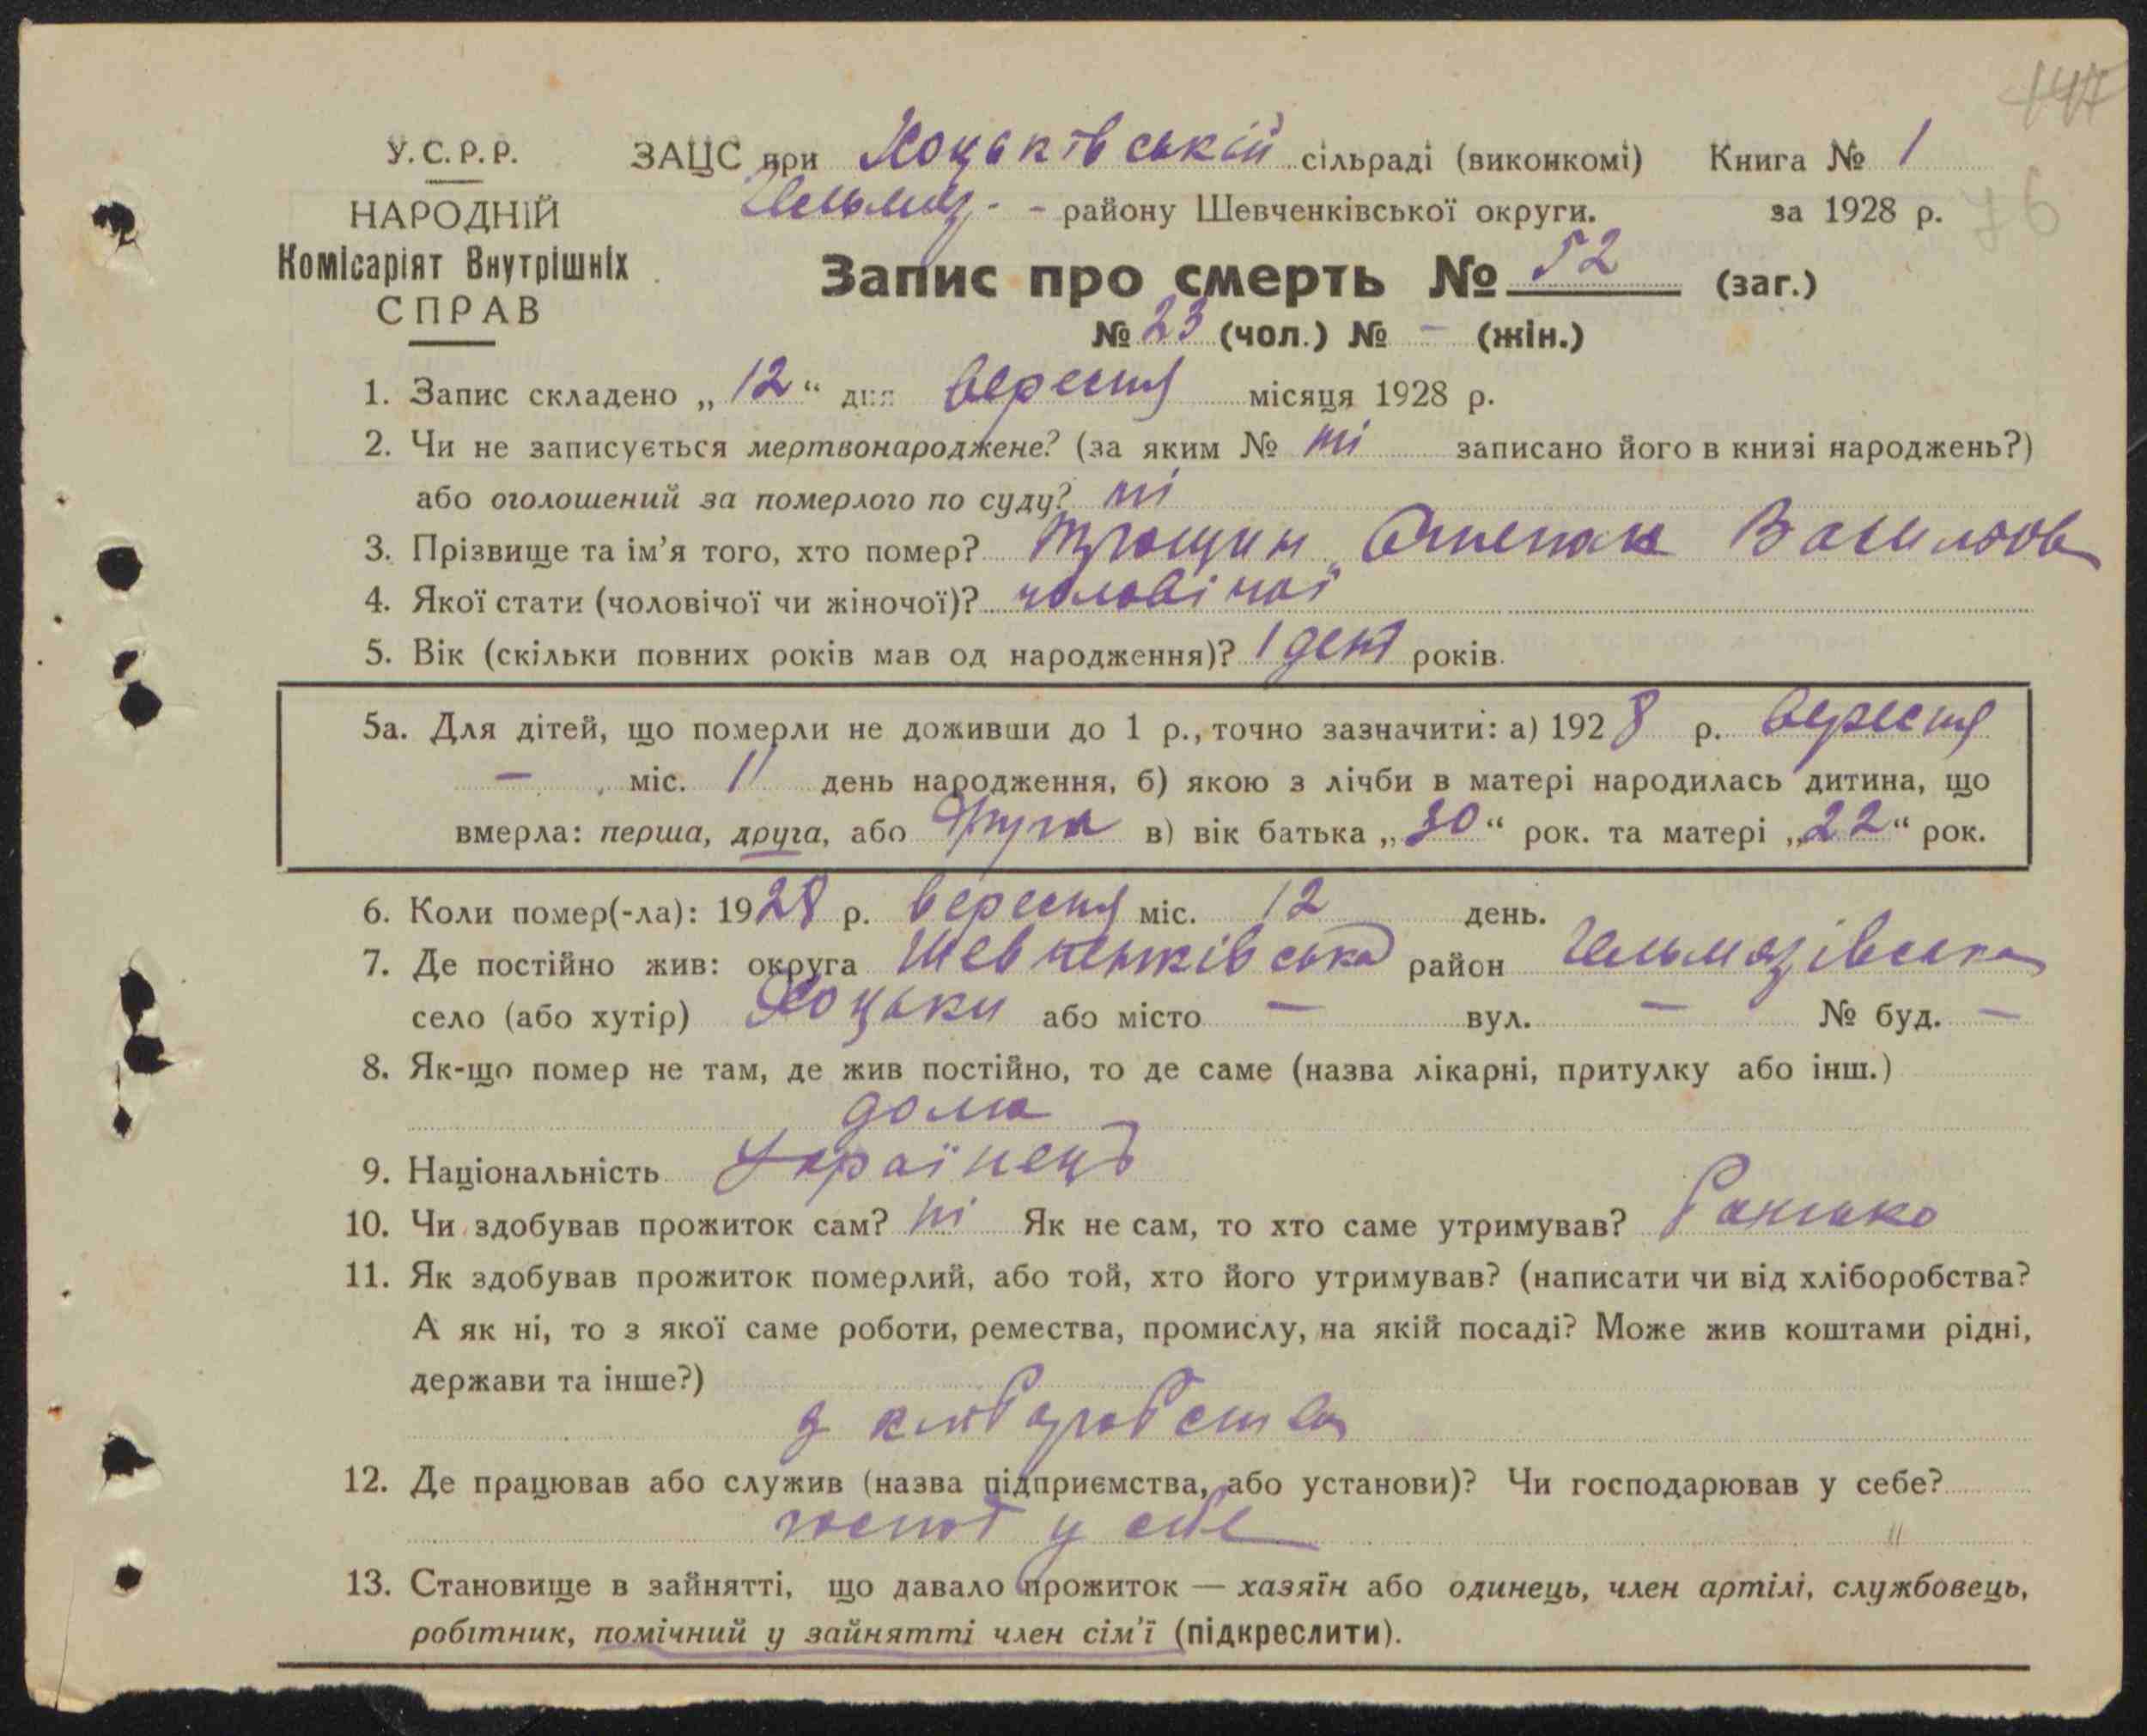 147
У.С.Р.Р. ЗАЦС при Хоцьківській сільраді (виконкомі) Книга № 1
НАРОДНІЙ Гельмяз- - району Шевченківської округи. за 1928 р. 76
Комісаріят Внутрішніх
СПРАВ
Запис про смерть № 52 (заг.)
№ 23 (чол.) № - (жін.)
1. Запис складено „ 12 “ дня вересня місяця 1928 р.
2. Чи не записується мертвонароджене? (за яким № ні записано його в книзі народжень?)
або оголошений за померлого по суду? ні
3. Прізвище та ім’я того, хто помер? Трощин Степан Васильов
4. Якої стати (чоловічої чи жіночої)? чоловічої
5. Вік (скільки повних років мав од народження)? 1 день років.
5а. Для дітей, що померли не доживши до 1 р., точно зазначити: а) 1928 р. вересня
– міс. 11 день народження, б) якою з лічби в матері народилась дитина, що
вмерла: перша, друга, або друга в) вік батька „30“ рок. та матері „22“ рок.
6. Коли помер(-ла): 1928 р. вересня міс. 12 день.
7. Де постійно жив: округа Шевченківська район Гельмязівська
село (або хутір) Хоцьки або місто – вул. – № буд. –
8. Як-що помер не там, де жив постійно, то де саме (назва лікарні, притулку або інш.)
дома
9. Національність Українець
10. Чи здобував прожиток сам? ні Як не сам, то хто саме утримував? батько
11. Як здобував прожиток померлий, або той, хто його утримував? (написати чи від хліборобства?
А як ні, то з якої саме роботи, ремества, промислу, на якій посаді? Може жив коштами рідні,
держави та інше?)
з хліборобства
12. Де працював або служив (назва підприємства, або установи)? Чи господарював у себе?
госпоd у себе
13. Становище в зайнятті, що давало прожиток — хазяїн або одинець, член артілі, службовець,
робітник, помічний у зайнятті член сім’ї (підкреслити).